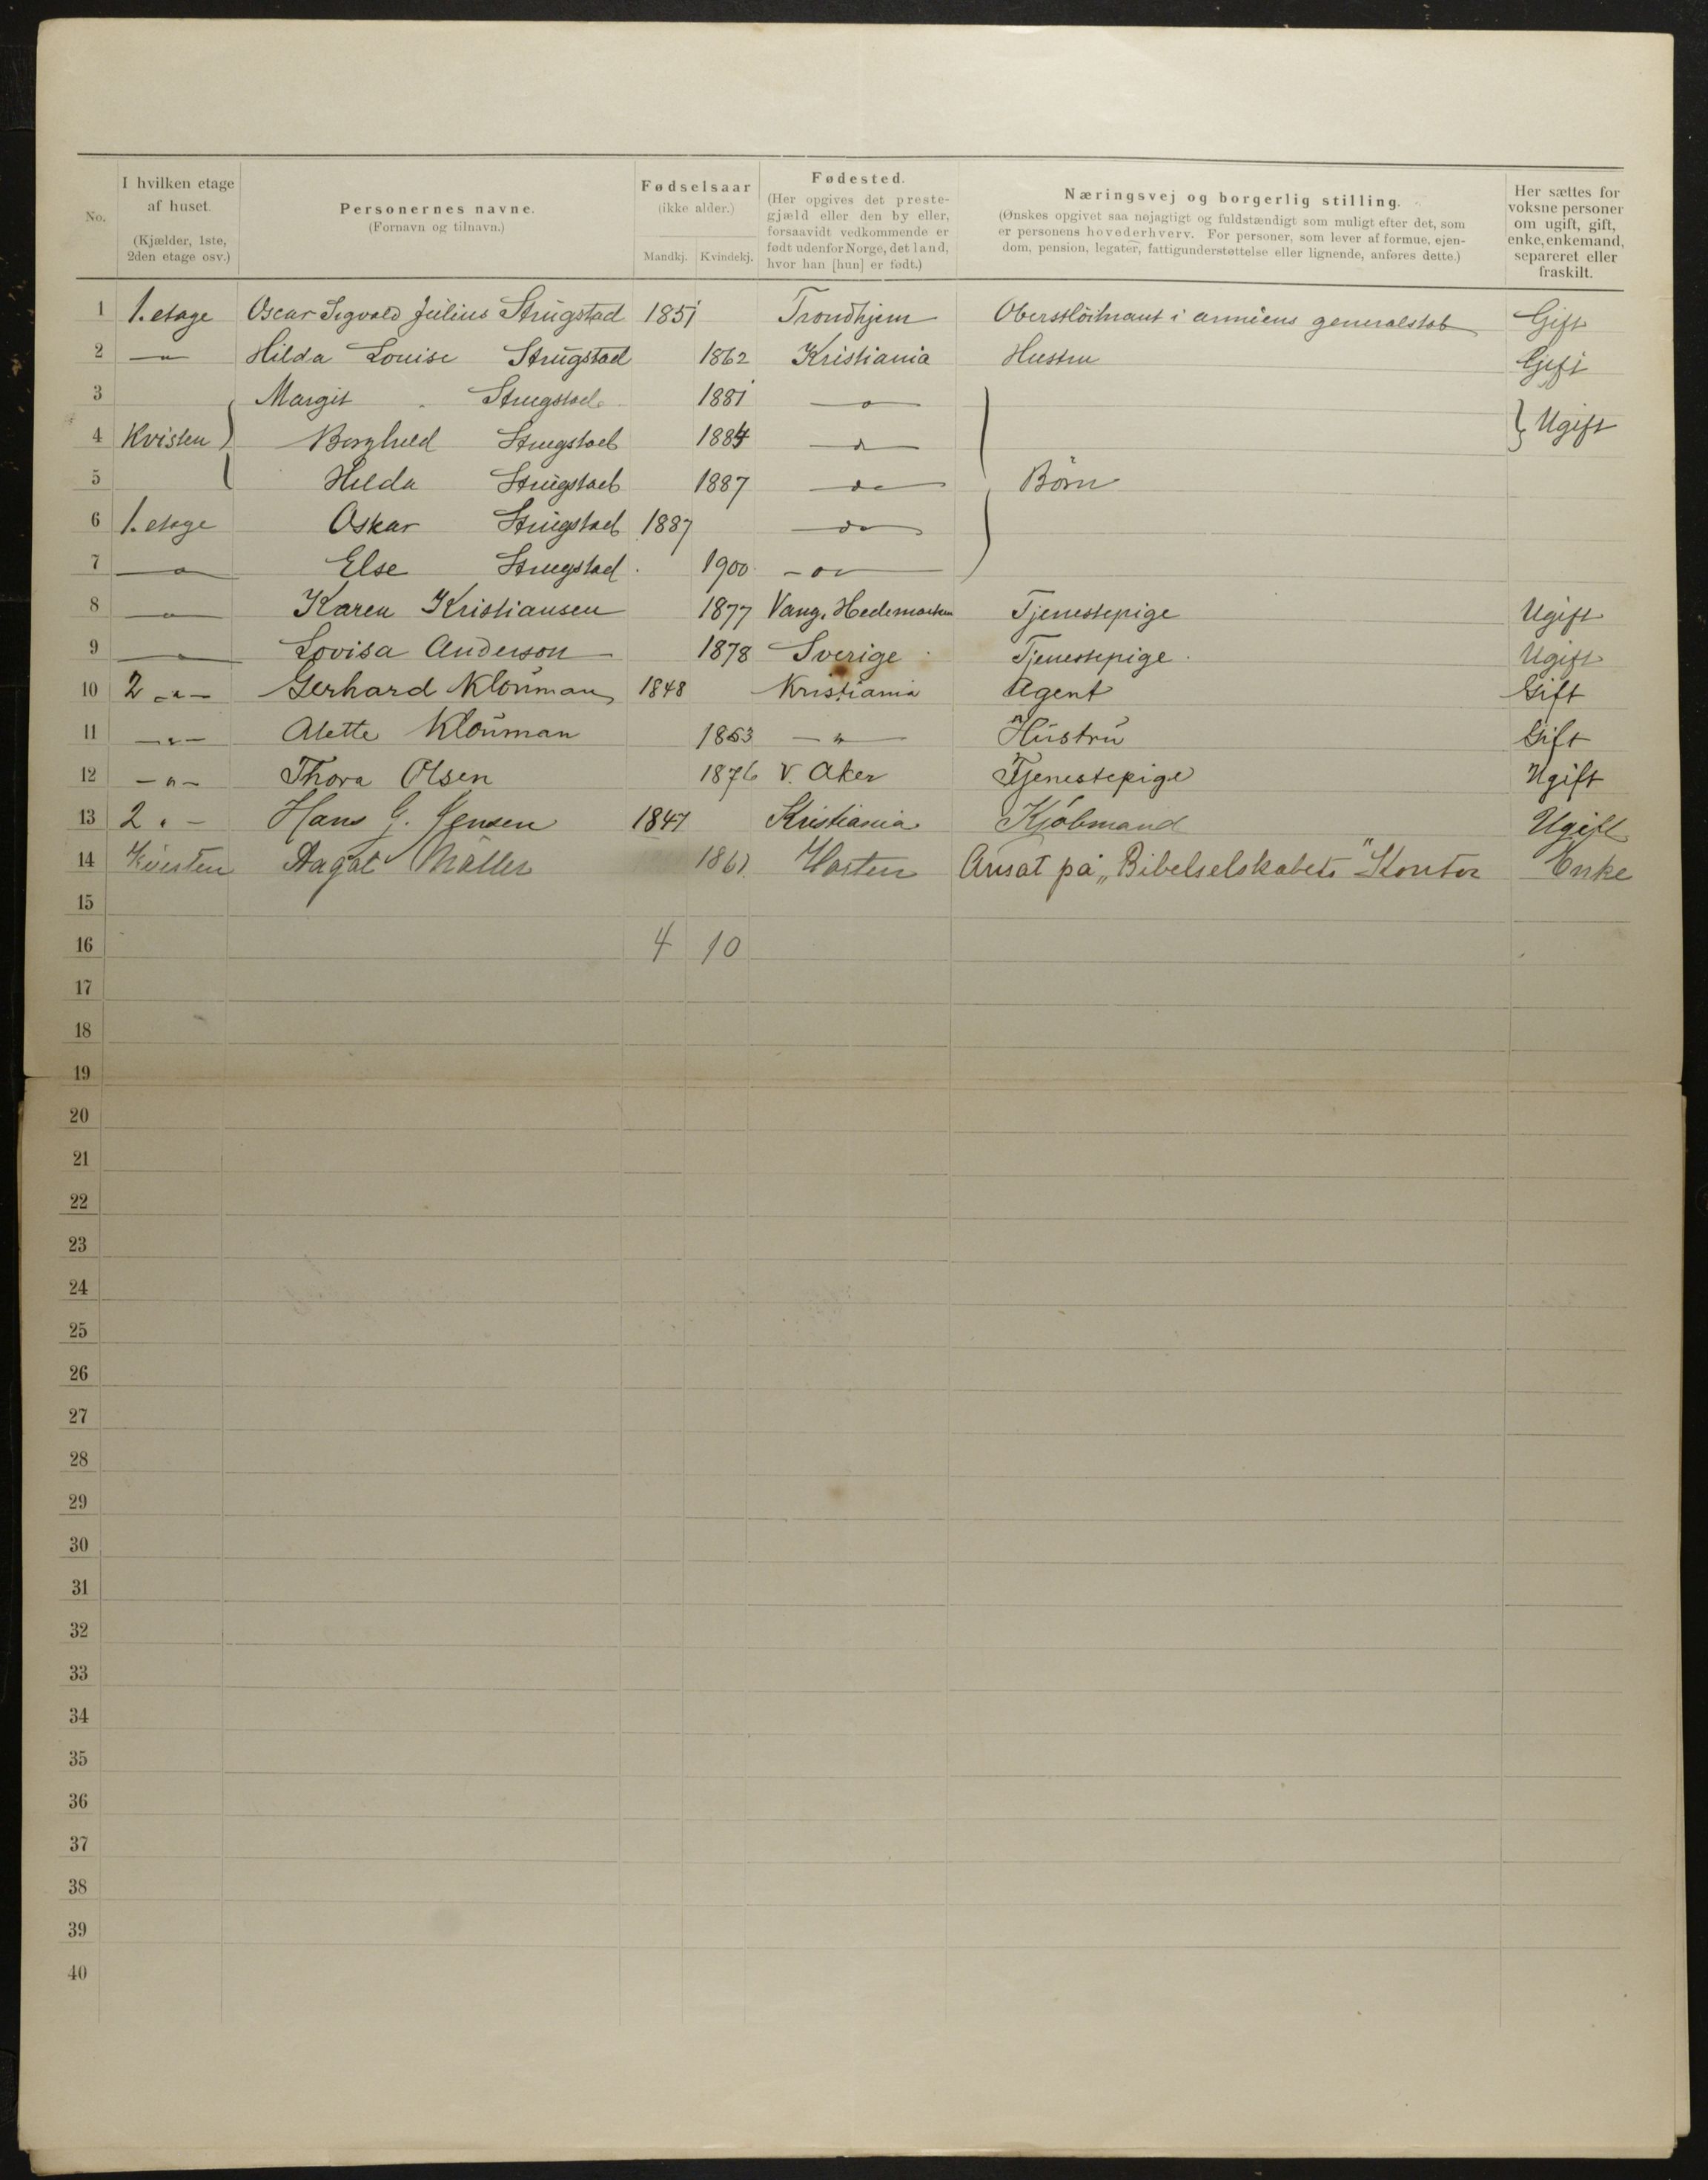 No.
I hvilken etage af huset. (Kjælder, 1ste, 2den etage osv.)
Personernes navne. (Fornavn og tilnavn.)
Fødselsaar (ikke alder.) Mandkj. Kvindekj.
Fødested. (Her opgives det prestegjæld eller den by eller, forsaavidt vedkommende er født udenfor Norge, det land, hvor han [hun] er født.)
Næringsvej og borgerlig stilling. (Ønskes opgivet saa nøjagtigt og fuldstændigt som muligt efter det, som er personens hovederhverv. For personer, som lever af formue, ejendom, pension, legater, fattigunderstøttelse eller lignende, anføres dette.)
Her sættes for voksne personer om ugift, gift, enke, enkemand, separeret eller fraskilt.
1 1. etage Oscar Sigvald Julius Strugstad 1851 Trondhjem Oberstlöitnant i arméens generalstab Gift
2 — " — Hilda Louise Strugstad 1862 Kristiania Hustru Gift
3 Margit Strugstad 1881 — " —
4 Kvisten } Borghild Strugstad 1884 — " — } Ugift
5 Hilda Strugstad 1887 — " — } Börn
6 1. etage Oskar Strugstad 1887 — " —
7 — " — Else Strugstad 1900 — " —
8 — " — Karen Kristiansen 1877 Vang, Hedemarken Tjenestepige Ugift
9 — " — Lovisa Anderson 1878 Sverige Tjenestepige Ugift
10 2 - " - Gerhard Kloúman 1848 Kristiania Agent Gift
11 - " - Alette Kloúman 1853 - " - Hústrú Gift
12 - " - Thora Olsen 1876 V. Aker Tjenestepige Ugift
13 2 " - Hans G. Jensen 1847 Kristiania Kjöbmand Ugift
14 Kvisten Aagot Möller 1861 Horten Ansat på „Bibelselskabets" Kontor Enke
15
16 4 10
17
18
19
20
21
22
23
24
25
26
27
28
29
30
31
32
33
34
35
36
37
38
39
40